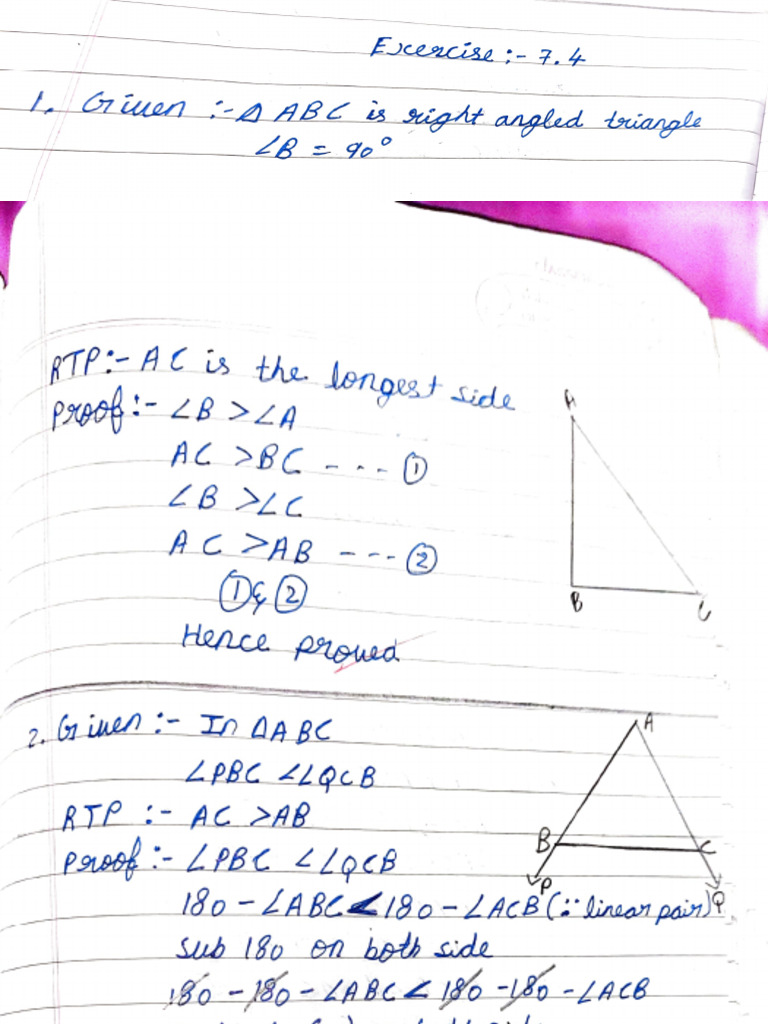 Exercise :- 7.4
1. Given :- △ ABC is right angled triangle
∠B = 90°
RTP :- AC is the longest side
Proof :- ∠B > ∠A
AC > BC - - - - ①
∠B > ∠C
AC > AB - - - - ②
① & ②
Hence proved
A
B
C
2. Given :- In △ABC
∠PBC < ∠QCB
RTP :- AC > AB
Proof :- ∠PBC < ∠QCB
180 - ∠ABC < 180 - ∠ACB (∵ linear pair)
sub 180 on both side
180 - 180 - ∠ABC < 180 - 180 - ∠ACB
A
B
C
P
Q